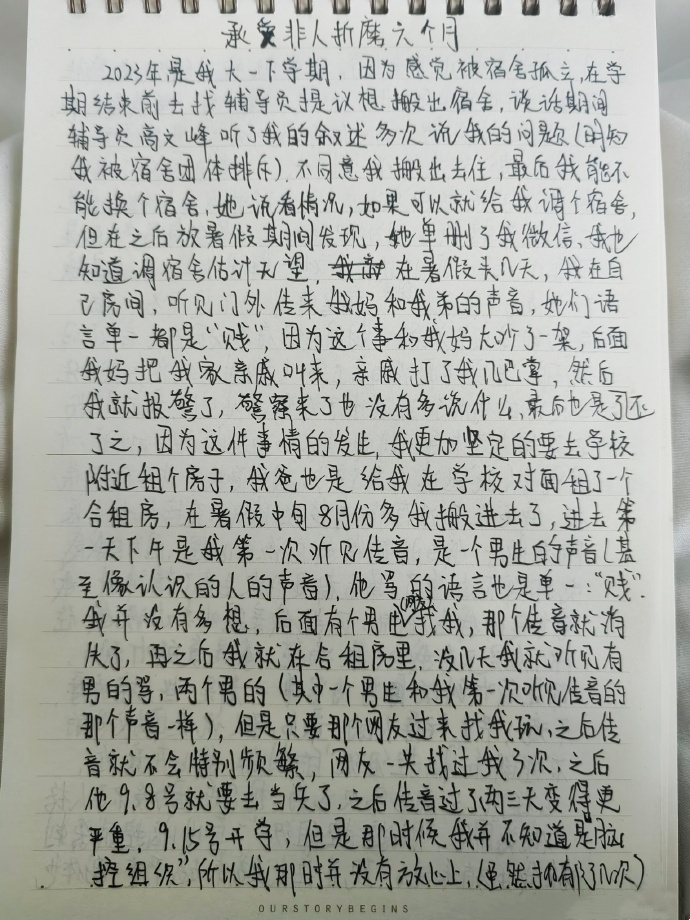 承受非人折磨六个月
2023年是我大一下学期，因为感觉被宿舍孤立，在学
期结束前去找辅导员提议想搬出宿舍，谈话期间
辅导员高文峰听了我的叙述多次说我的问题（明知
我被宿舍团体排斥）不同意我搬出去住，最后我能不
能换个宿舍，她说看情况，如果可以就给我调个宿舍，
但在之后放暑假期间发现，她单删了我微信，我也
知道调宿舍估计无望，在暑假头几天，我在自
己房间，听见门外传来我妈和我弟的声音，她们语
言单一都是“贱”，因为这个事和我妈大吵了一架，后面
我妈把我家亲戚叫来，亲戚打了我几巴掌，然后
我就报警了，警察来了也没有多说什么，最后也是
了之，因为这件事情的发生，我更加坚定的要去学校
附近租个房子，我爸也是给我在学校对面租了一个
合租房，在暑假中旬8月份多我搬进去了，进去第
一天下午是我第一次听见传音，是一个男生的声音（甚
至像认识的人的声音），他骂的语言也是单一：“贱”.
我并没有多想，后面有个男生（网友）找我，那个传音就消
失了，再之后我就在合租房里，没几天我就听见有
男的骂，两个男的（其中一个男生和我第一次听见传音的
那个声音一样），但是只要那个网友过来找我玩，之后传
音就不会特别频繁，网友一共找过我3次，之后
他9.8号就要去当兵了，之后传音过了两三天变得更
严重，9.15号开学，但是那时候我并不知道是“脑
控组织”，所以我那时并没有放心上，（虽然
OURSTORYBEGINS